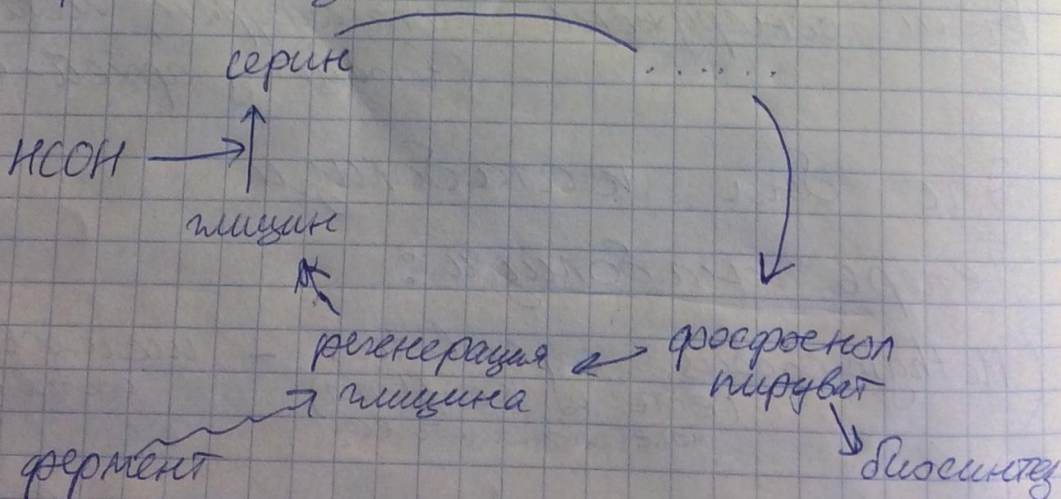 серин
......
НСОН
глицин
регенерация
глицина
фосфоенол
пируват
фермент
биосинтез